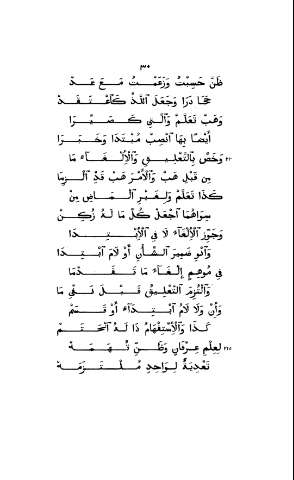 ٣٠
ظَنَّ حَسِبْتُ وَزَعَمْتُ مَعَ عَدّ
حَجَا دَرَا وَجَعَلَ اللَّذْ كَاعْتَقَدْ
وَهَبْ تَعَلَّمْ وَالَّتِي كَصَيَّرَا
أَيْضًا بِهَا انْصِبْ مُبْتَدًا وَخَبَرَا
٢١٠ وَخُصَّ بِالتَّعْلِيقِ وَالْإِلْغَاءِ مَا
مِنْ قَبْلِ هَبْ وَالْأَمْرَ هَبْ قَدْ أُلْزِمَا
كَذَا تَعَلَّمْ وَلِغَيْرِ الْمَاضِ مِنْ
سِوَاهُمَا اجْعَلْ كُلَّ مَا لَهُ زُكِنْ
وَجَوِّزِ الْإِلْغَاءَ لَا فِي الْاِبْتِدَا
وَانْوِ ضَمِيرَ الشَّأْنِ أَوْ لَامَ ابْتِدَا
فِي مُوهِمٍ إِلْغَاءَ مَا تَقَدَّمَا
وَالْتُزِمَ التَّعْلِيقُ قَبْلَ نَفْيِ مَا
وَإِنْ وَلَا لَامُ ابْتِدَاءٍ أَوْ قَسَمْ
كَذَا وَالْاِسْتِفْهَامُ ذَا لَهُ انْحَتَمْ
٢١٥ لِعِلْمِ عِرْفَانٍ وَظَنِّ تُهَمَهْ
تَعْدِيَةٌ لِوَاحِدٍ مُلْتَزَمَهْ